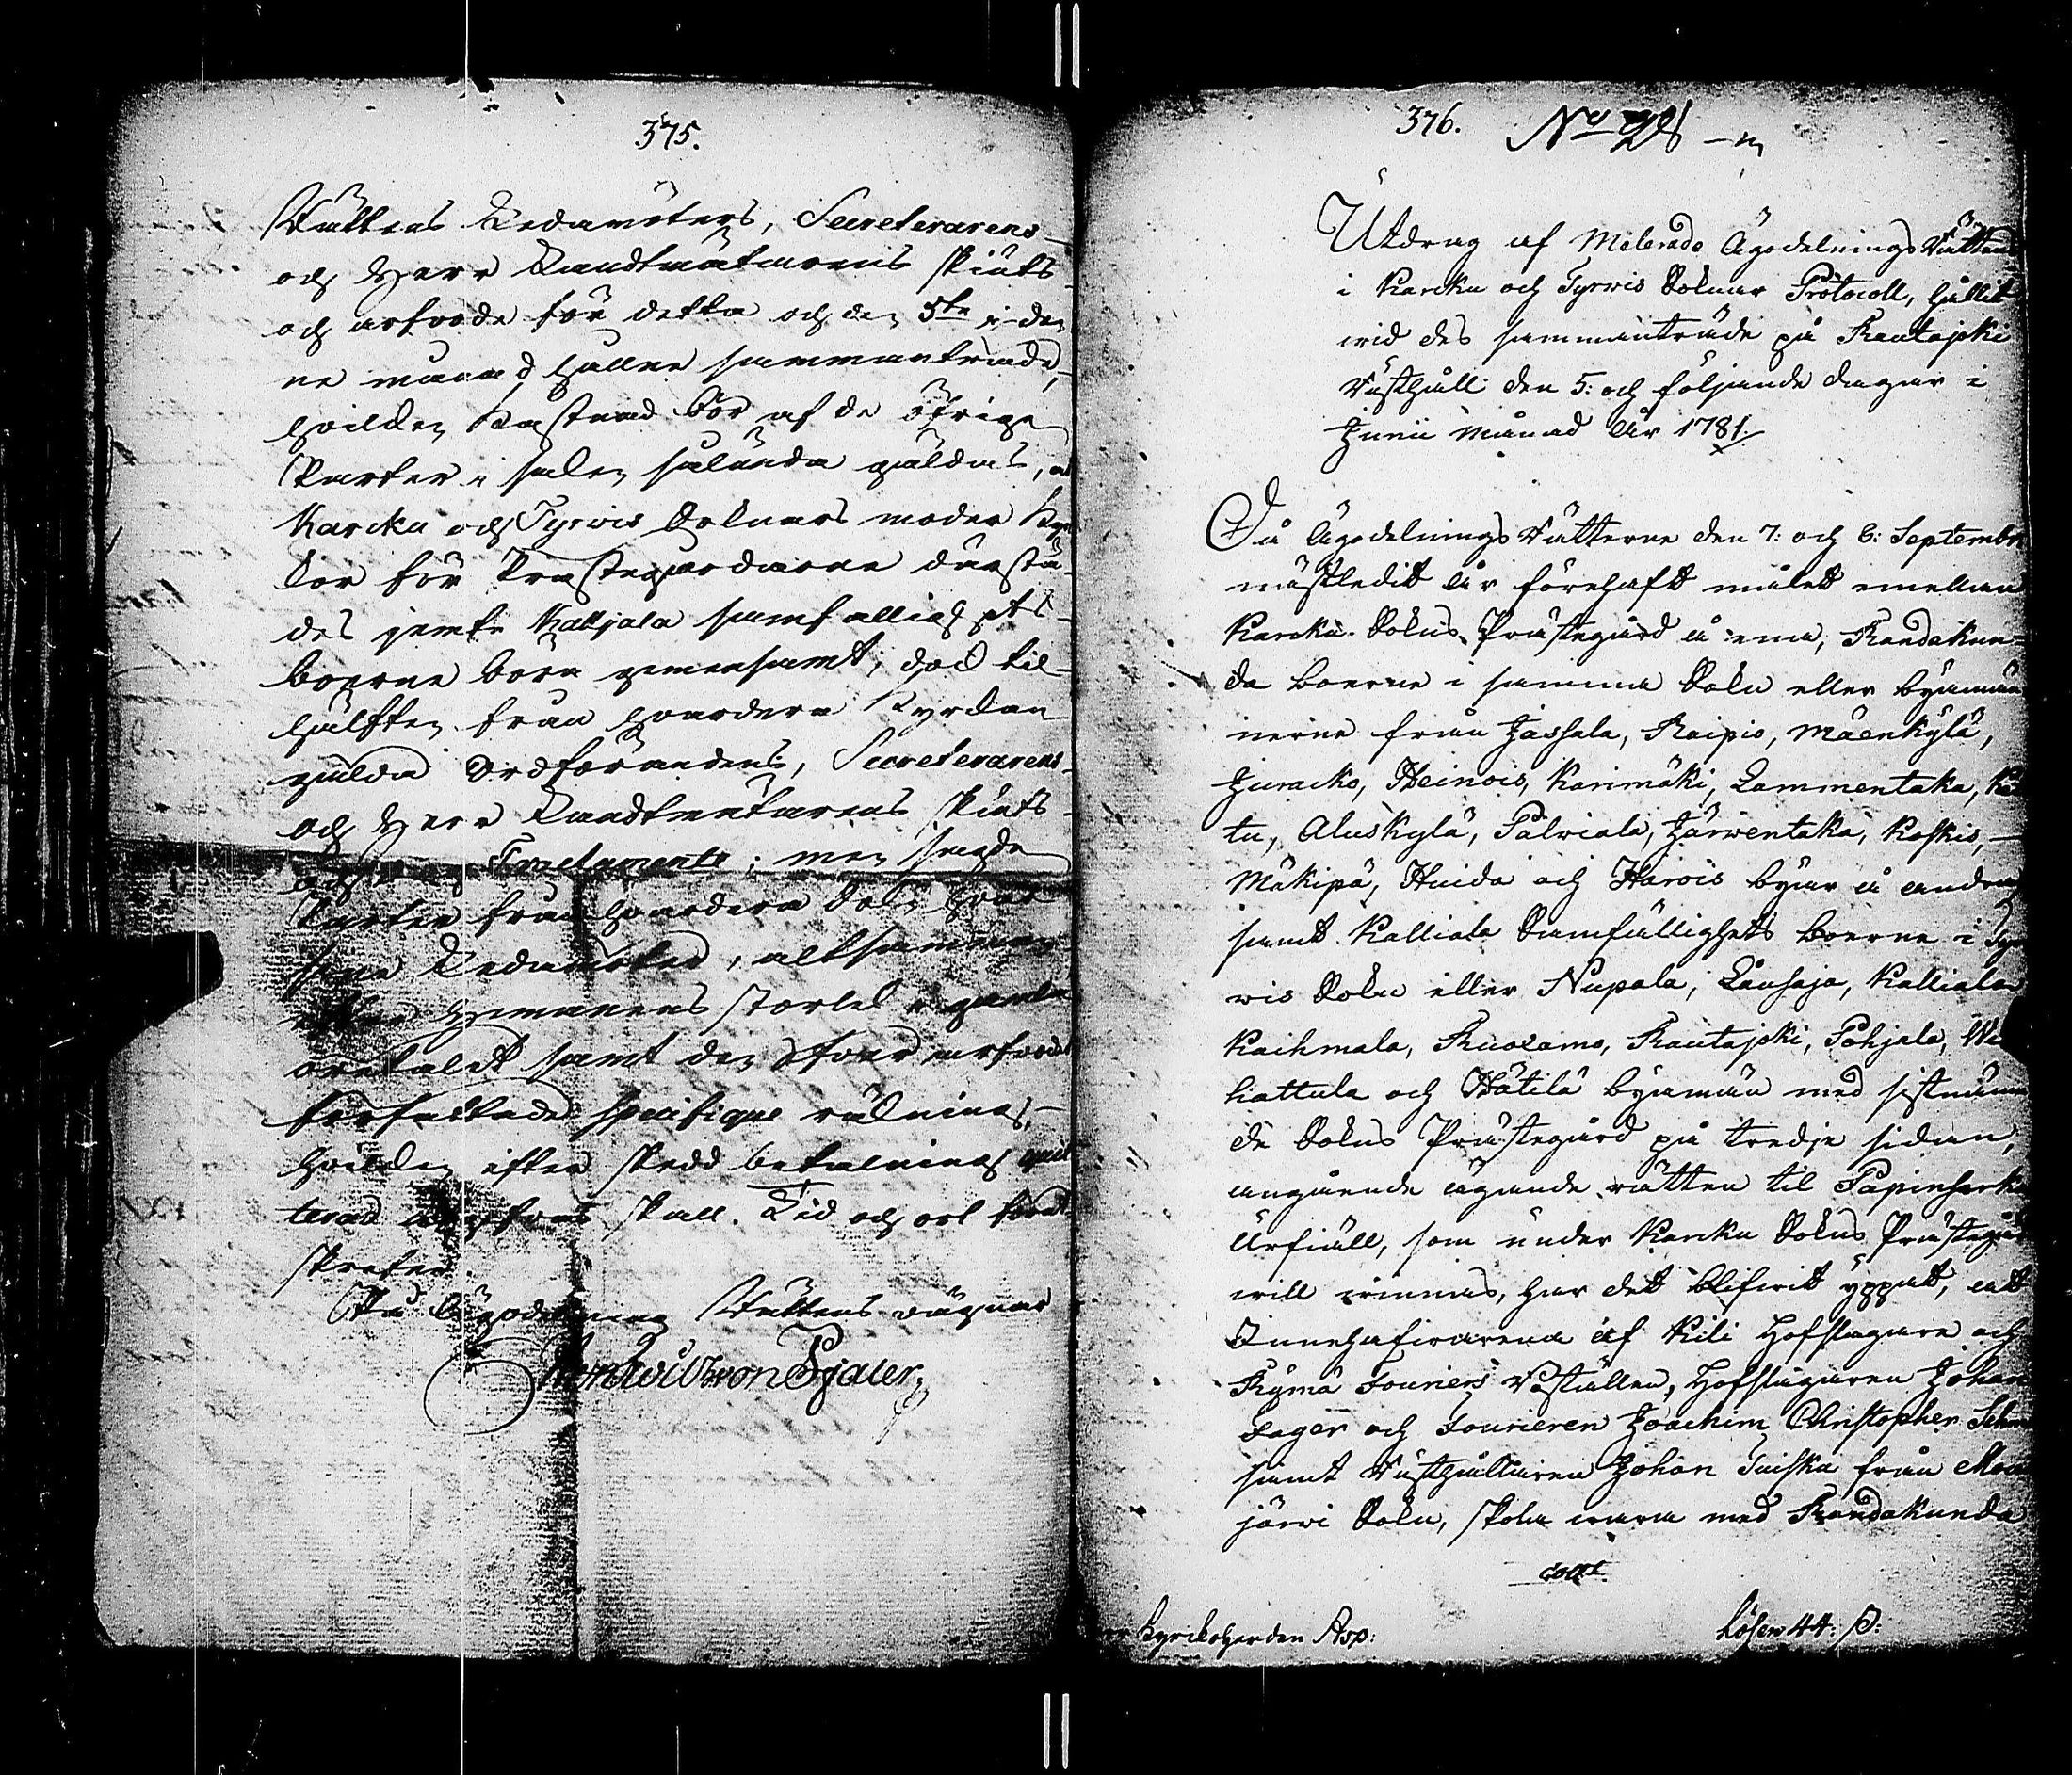 375.
Rättens Ledamöters, Secreterarens
och Herr Landtmätarens skiuts
och arfvode för detta och den 5te i den
ne månad hållne sammanträde,
hvilken kostnad bör af de öfrige
Parter i saken sålunda gäldas, at
Karcku och Tyrvis Soknars moder Kyr
kor för Prästegårdarne därstä
des jemte Kalljala samfällighets
boerne böra gemensamt, dock til
hälften från hvardera Kyrkan
gulda Ordförandens, Secreterarens
och Herr Landtmätarens skiuts
och Tractamente; men sagde
Parter från hvardera Sokn hvar
sine Ledamöter, altsammans
efter Hemmanens storlek
samt den öfver arfvodet
författade specifique räkning,
hvilken efter skedd betalning quit
teras skall. Tid och ort förut
skrefne.
På Ägodelning Rättens vägnar

376. No 28
Utdrag af Melerade Ägodelnings Rättens
i Karcku och Tyrvis Soknar Protocoll, hållit
vid des sammanträde på Rautajoki
Rusthåll den 5: och följande dagar i
Junii Månad År 1781.
Då Ägodelnings Rätterne den 7: och 8: Septembr
näst ledit År förehaft målet emellan
Karcku Sokns Prästegård å ena, Randakun-
da boerne i samma Sokn eller byamän
nerne från Jassala, Raipio, Mäenkylä,
Juracko, Heinois, Karimäki, Lammentaka, Kä
tu, Aluskylä, Palviala, Järventaka, Koskis,
Mäkipä, Huida och Harois byar å andra
samt Kalliala Samfällighets boerne i Tyr
vis Sokn eller Nupala, Liuhaja, Kalliala
Kaihmala, Ruozamo, Rautajoki, Pohjala, We
hattula och Hätilä byamän med sistnämn
de Sokns Prästegård på tredje sidan,
angående ägande rätten til Papinsarka
Urfiäll, som under Karcku Sokns Prästegård
vill vinnas, har det blifvit yppat, att
Innehafvarena af Kili Hofslagare och
Rymä Fouriers Boställen, Hofslagaren Johan
Fager och Fourieren Joachim Christopher
samt Rusthållaren Johan Suiska från Mou
järvi Sokn, skola vara med Randakunda
coll.
Kyrckoherden Asp:
Lösen 44: S: